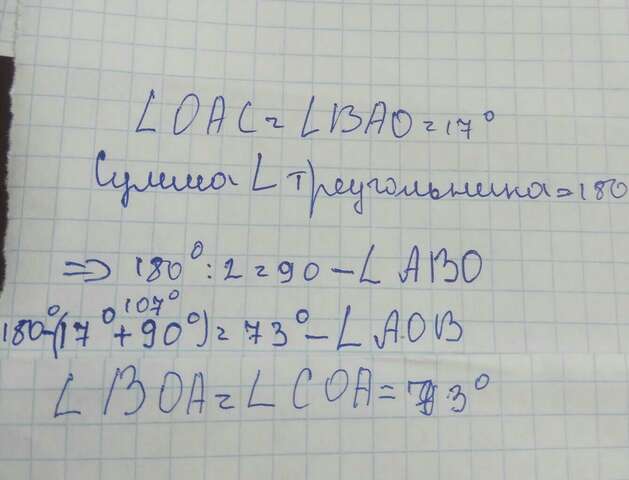 ∠OAC = ∠BAO = 17°
Сумма ∠ треугольника = 180
=> 180° : 2 = 90 - ∠ABO
107°
180° - (17° + 90°) = 73° - ∠AOB
∠BOA = ∠COA = 73°